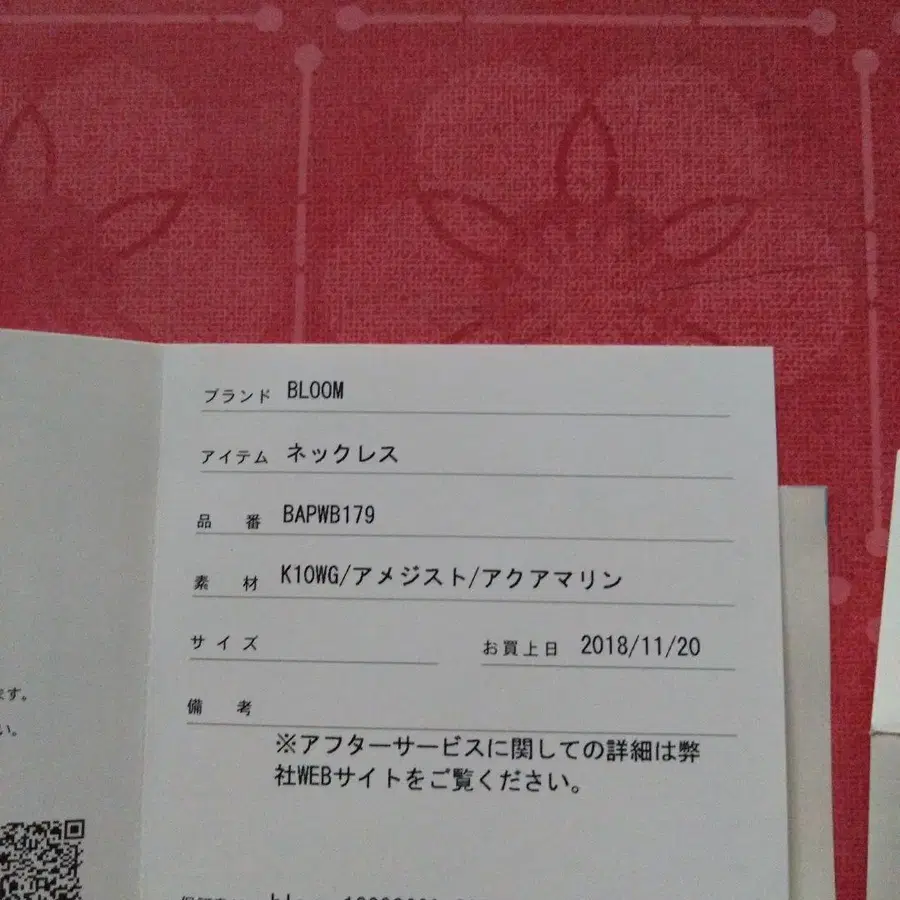 ブランド BLOOM
アイテム ネックレス
品番 BAPWB179
素材 K10WG/アメジスト/アクアマリン
サイズ お買上日 2018/11/20
備考
※アフターサービスに関しての詳細は弊
社WEBサイトをご覧ください。
ます。
い。